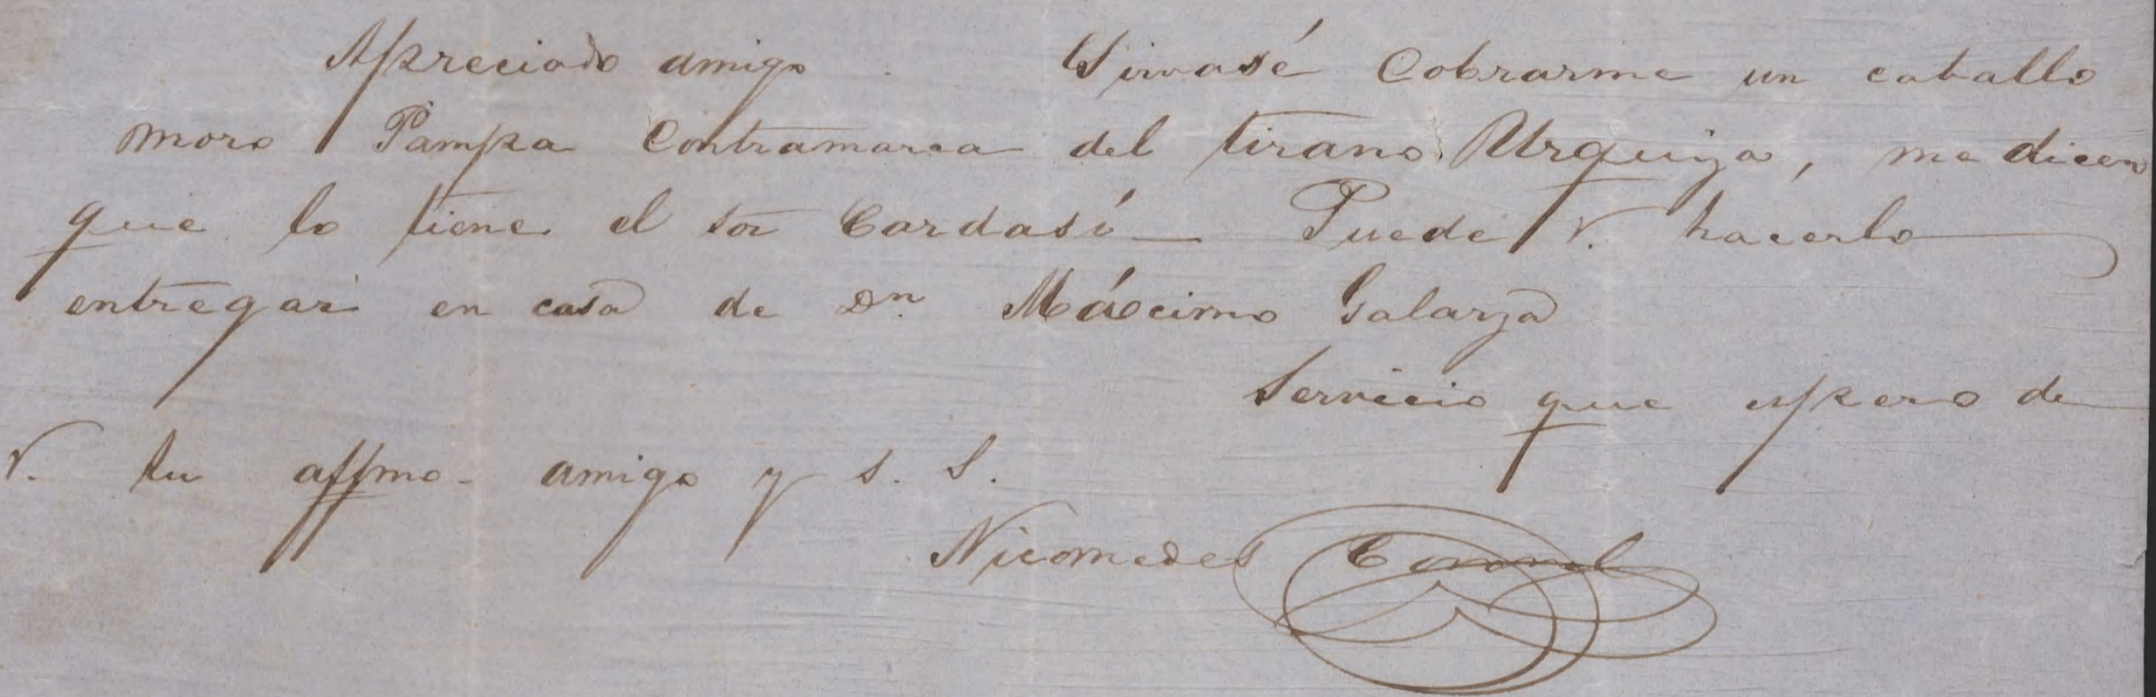 Apreciado amigo Sirvasé Cobrarme un caballo
moro Pampa Contramarca del tirano Urquiza, me dicen
que lo tiene el Sor Cardasó Puede V. hacerlo
entregar en casa de Dn. Máccimo Galarza
Servicio que espero de
V. su affmo. amigo y S. S.
Nicomedes Coronel